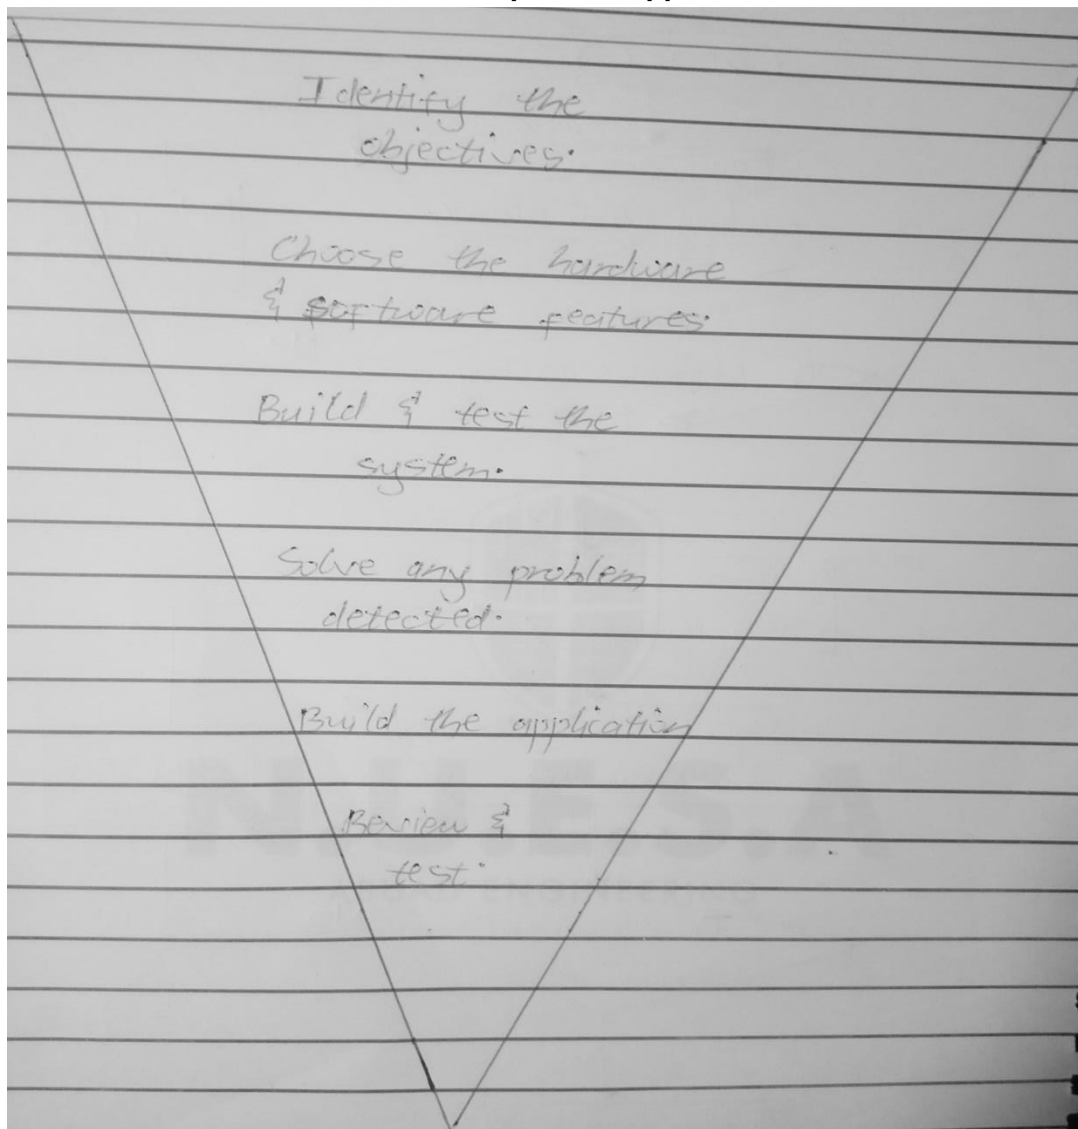 Identify the
objectives.
Choose the hardware
& software features.
Build & test the
system.
Solve any problem
detected.
Build the application
Review &
test.
N.U.E.S.A
ENGINEERING